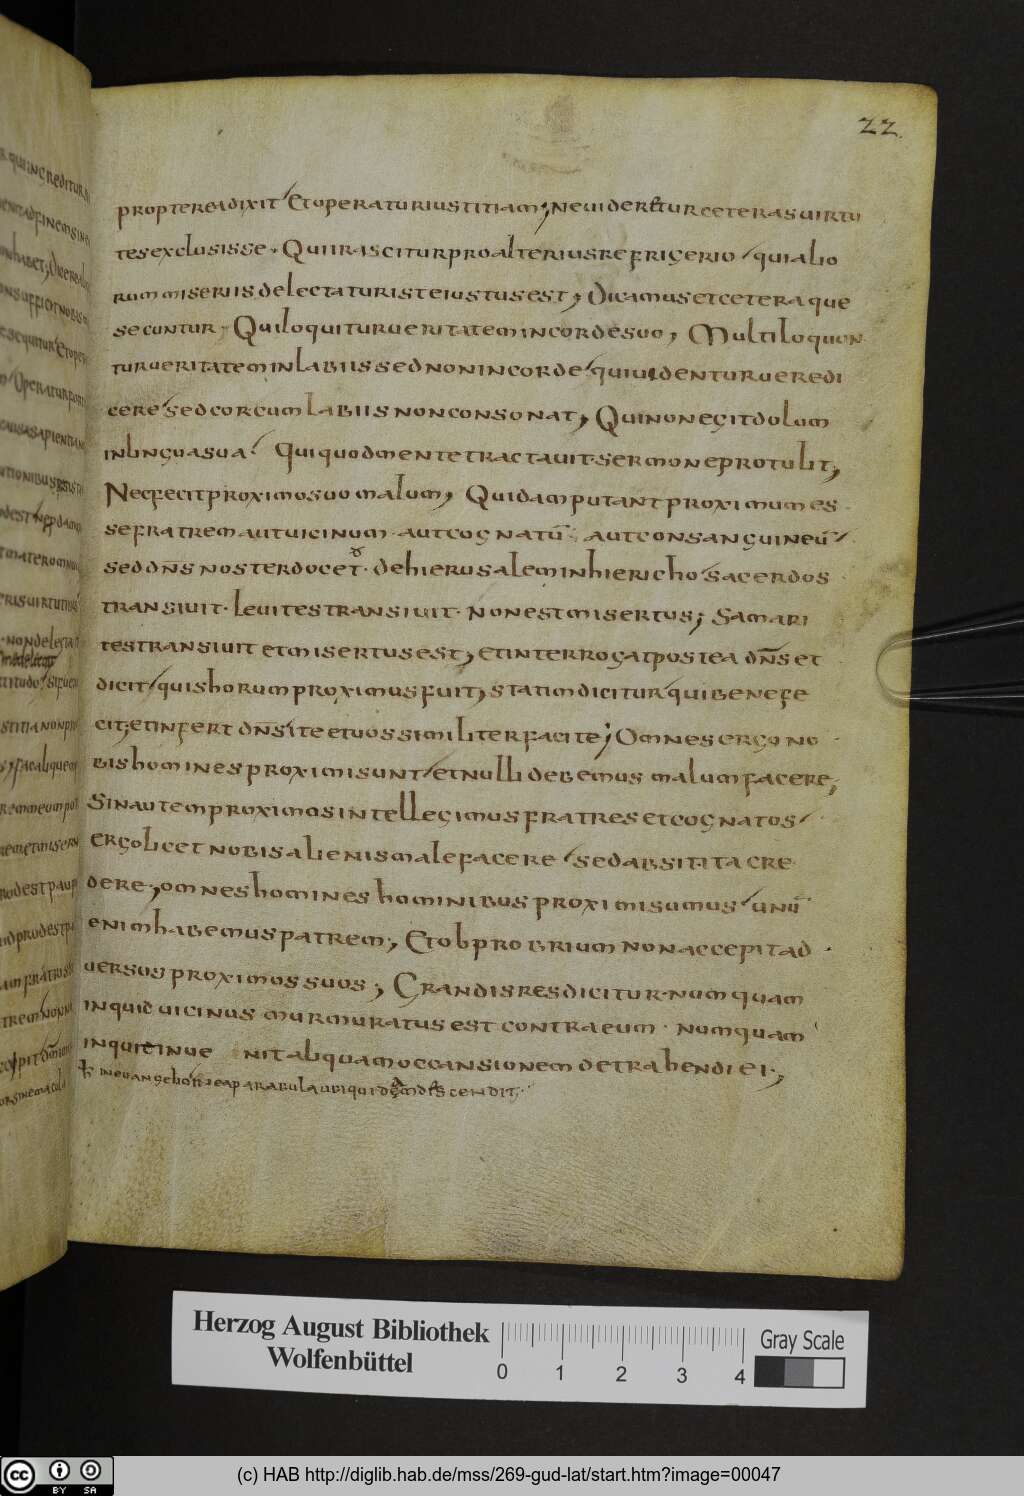 22.
propterea dixit et operatur iustitiam; ne uideretur ceteras uirtu
tes exclusisse. Qui irascitur pro alterius refrigerio qui alio
rum miseriis delectatur iste iustus est; Dicamus et cetera que
secuntur; Qui loquitur ueritatem in corde suo; Multi loquun
tur ueritatem in labiis sed non in corde qui uidentur uere di
cere sed cor cum labiis non consonat; Qui non egit dolum
in lingua sua. Qui quod mente tractauit sermone protulit;
Nec fecit proximo suo malum; Quidam putant proximum es
se fratrem aut uicinum. aut cognatū aut consanguineū
sed dn̄s noster docet. de hierusalem in hiericho sacerdos
transiuit. leuites transiuit. non est misertus; samari
tes transiuit et misertus est; et interrogat postea dn̄s et
dicit quis horum proximus fuit; statim dicitur qui bene fe
cit; et infert dn̄s ite et uos similiter facite; Omnes ergo no
bis homines proximi sunt et nulli debemus malum facere;
Sin autem proximos intellegimus fratres et cognatos
ergo licet nobis alienis male facere sed absit ita cre
dere; omnes homines hominibus proximi sumus unū
enim habemus patrem; Et obprobrium non accepit ad
uersus proximos suos; Grandis res dicitur. numquam
inquid uicinus murmuratus est contra eum. numquam
inquit inuenit aliquam occansionem detrahendi ei.;
Herzog August Bibliothek
Wolfenbüttel
0 1 2 3 4
Gray Scale
cc BY SA
(c) HAB http://diglib.hab.de/mss/269-gud-lat/start.htm?image=00047